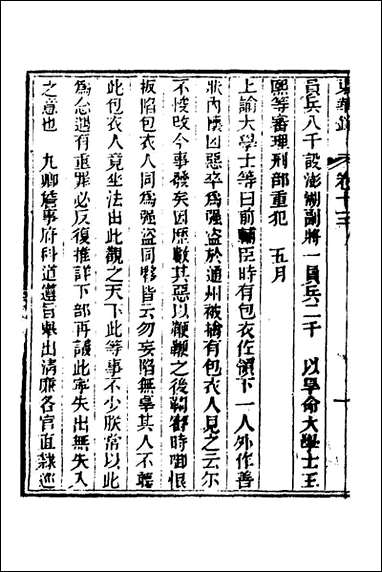 東華錄 卷十三 一
員兵八千設澎湖副將一員兵二千 以旱命大學士王
熙等審理刑部重犯 五月
上諭大學士等曰前輔臣時有包衣佐領下一人外作善
狀內懷凶惡卒爲强盜於通州被擒有包衣人見之云尔
不悛改今事發矣因歷數其惡以鞭鞭之後鞫審時啣恨
扳陷包衣人同爲强盜同夥皆云勿妄陷無辜其人不聽
此包衣人竟坐法由此觀之天下此等事不少朕常以此
爲念遇有重罪必反復推詳下部再議此寧失出無失入
之意也 九卿詹事府科道遵旨舉出清廉各官直隸巡